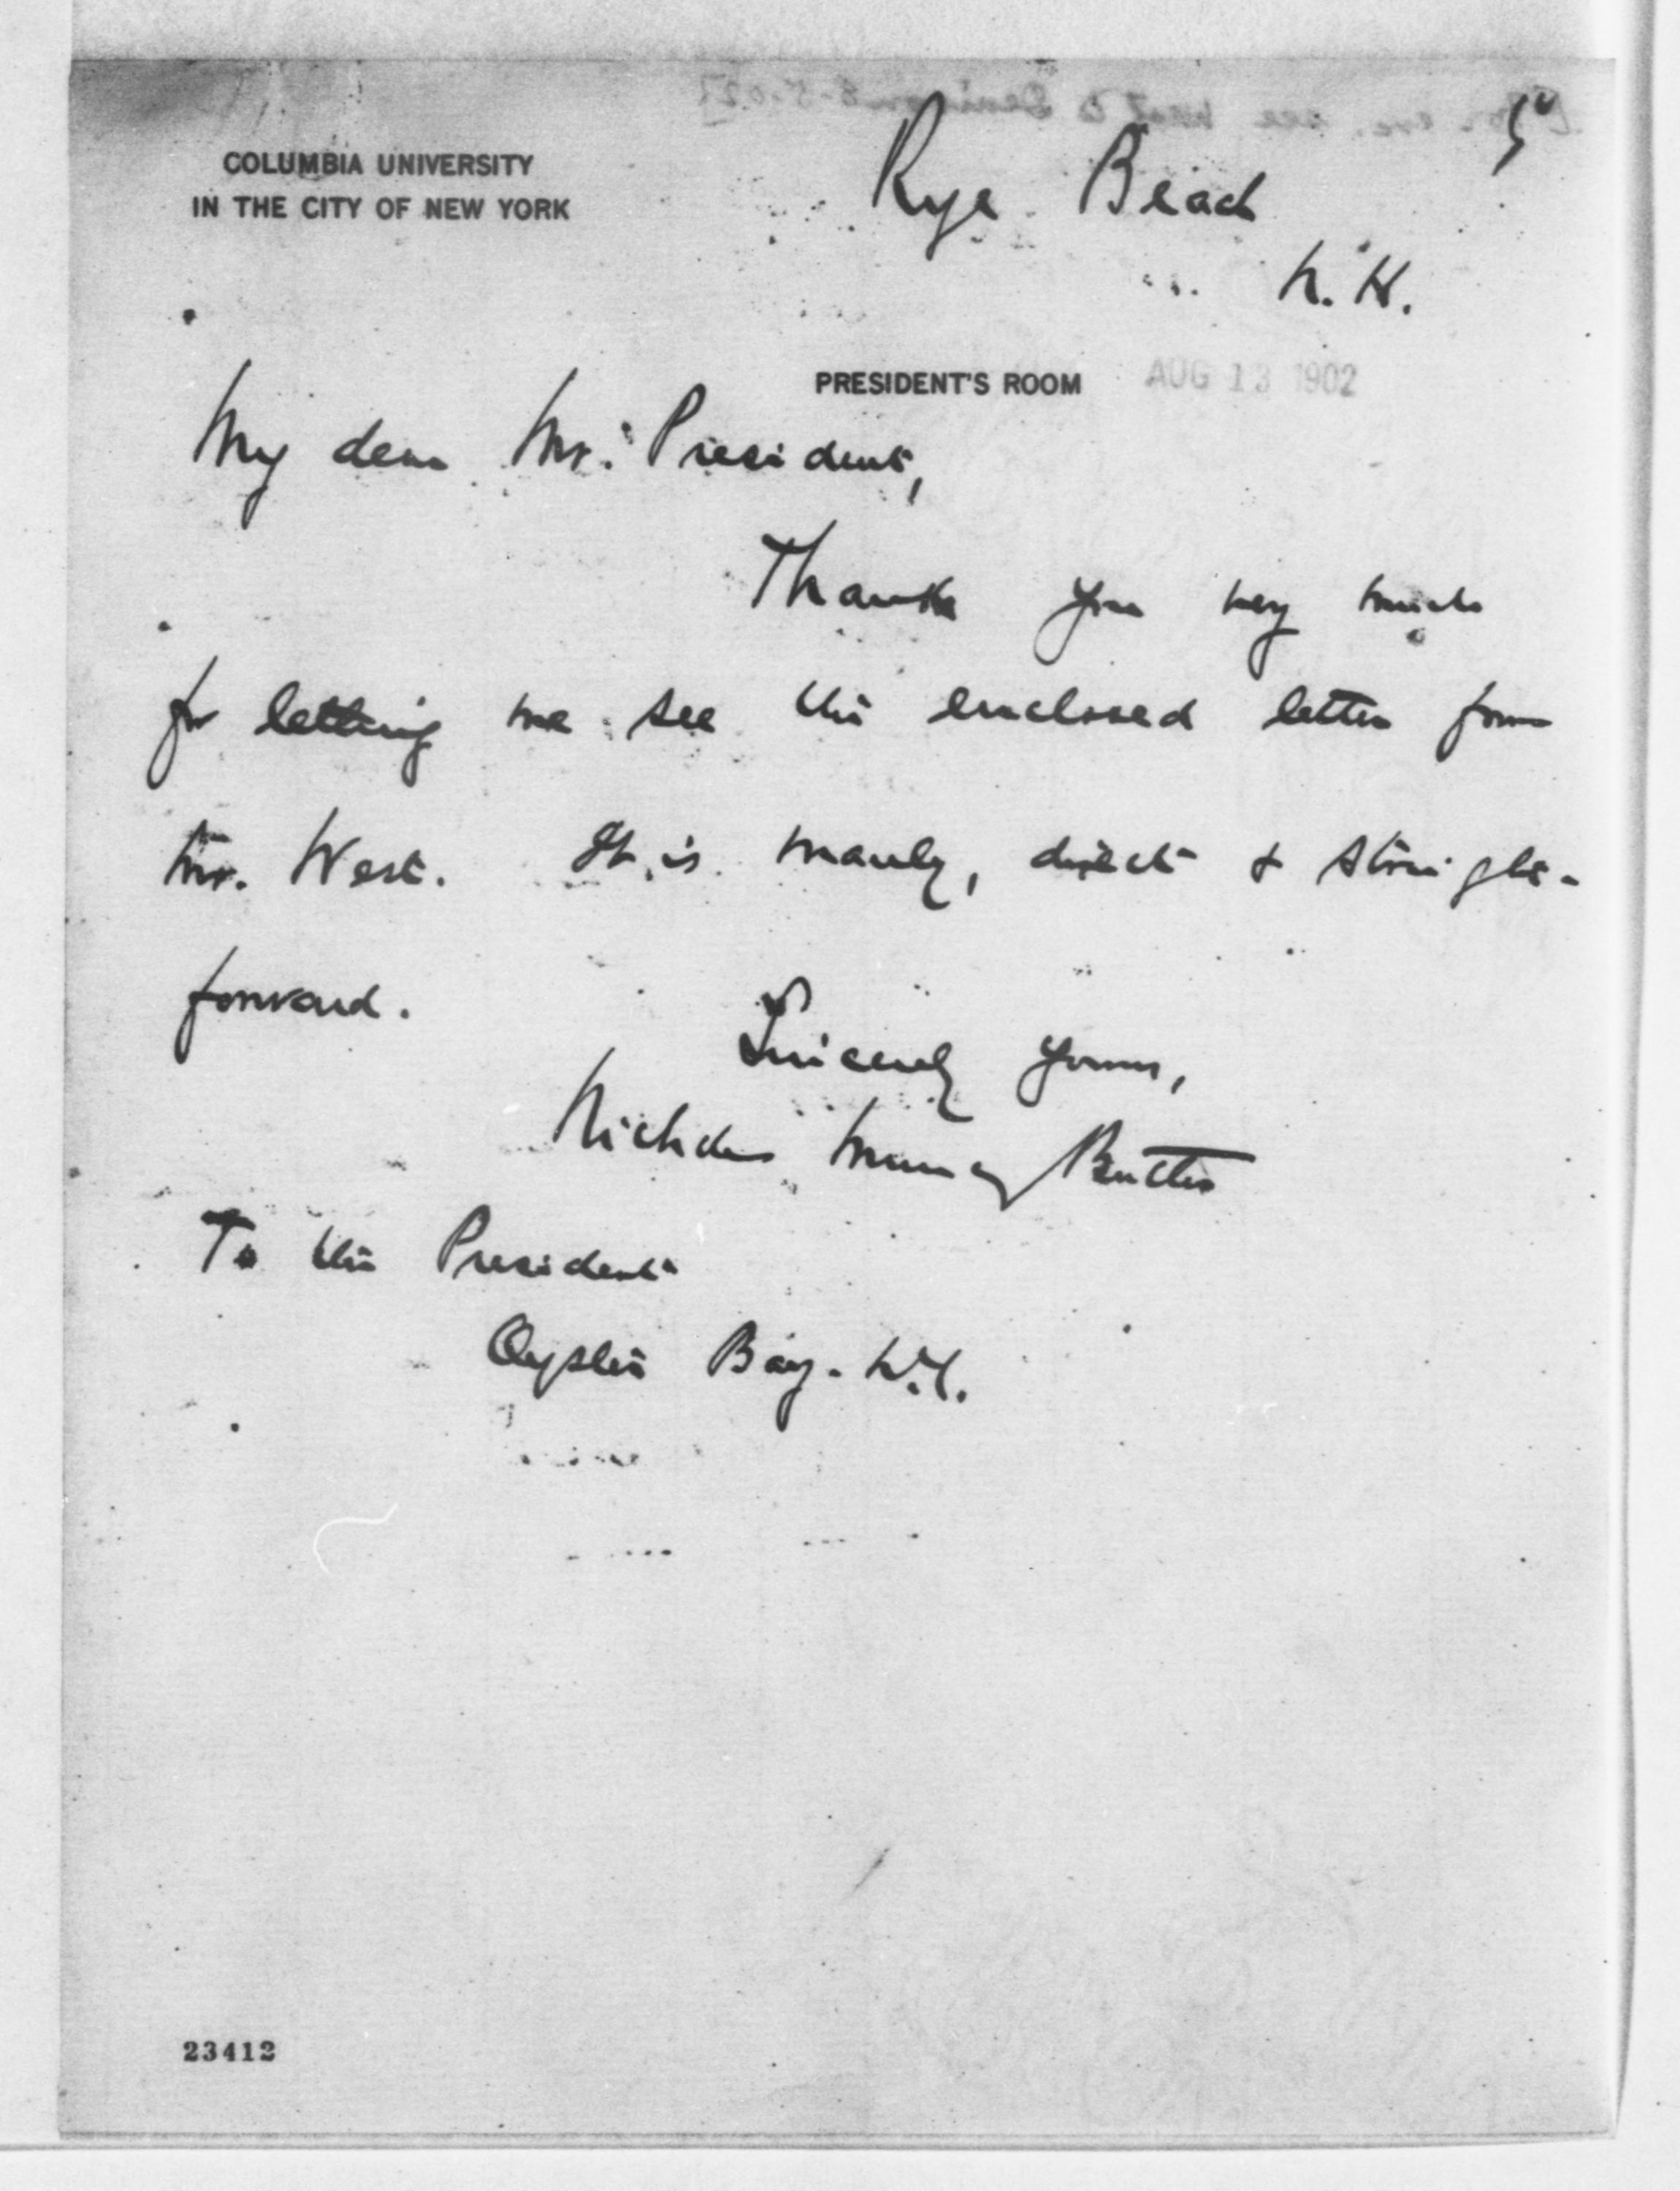 COLUMBIA UNIVERSITY
IN THE CITY OF NEW YORK
Rye Beach
N.H.
PRESIDENT'S ROOM AUG 13 1902
My dear Mr. President,
Thank you very much
for letting me see the enclosed letter from
Mr. West. It is manly, direct & straight-
forward.
Sincerely yours,
Nicholas Murray Butler
To the President
Oyster Bay. N.Y.
23412